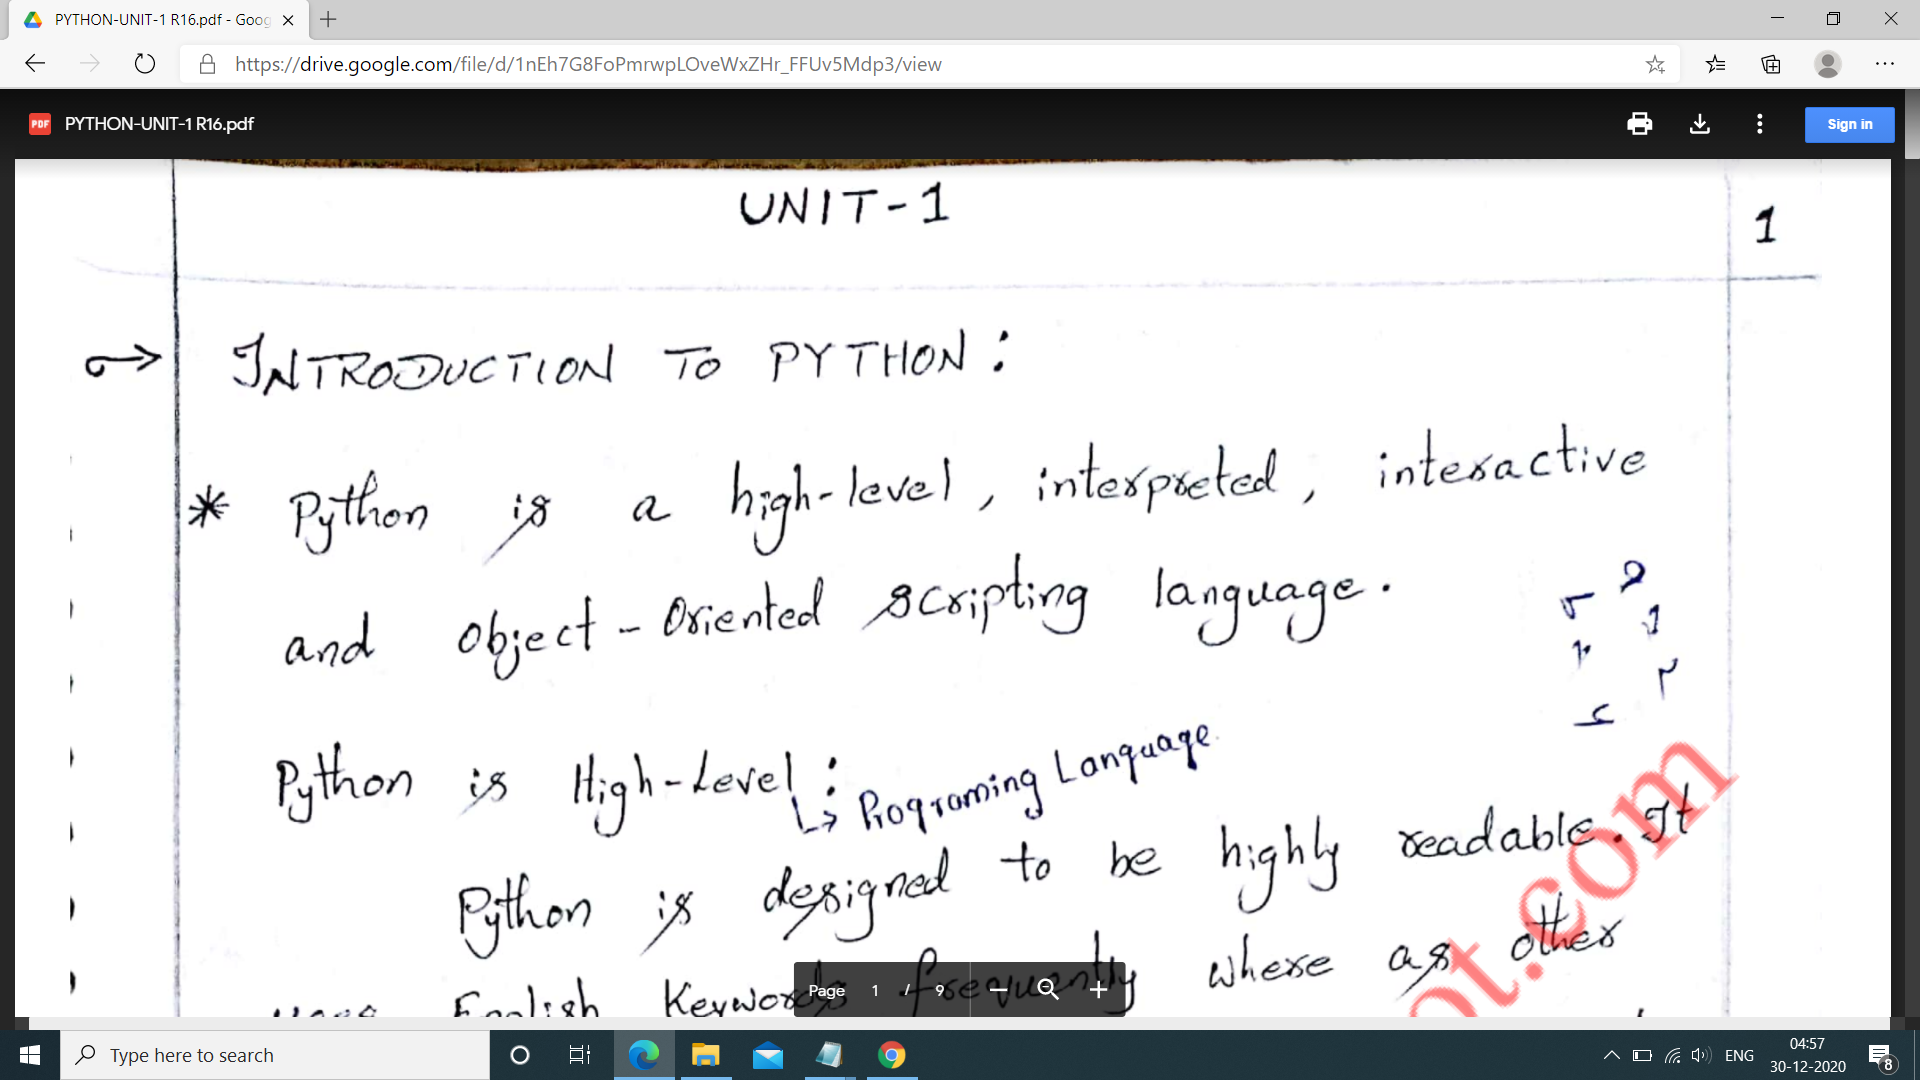 PYTHON-UNIT-1 R16.pdf - Goog
https://drive.google.com/file/d/1nEh7G8FoPmrwpLOveWxZHr_FFUv5Mdp3/view
PDF PYTHON-UNIT-1 R16.pdf
Sign in
UNIT-1
1
INTRODUCTION TO PYTHON:
* Python is a high-level, interpreted, interactive
and object-Oriented scripting language.
Python is High-Level:
↳ Programing Language
Python is designed to be highly readable. It
uses English Keywords frequently where as other
ot.com
Page 1 / 9
Type here to search
ENG
04:57
30-12-2020
8